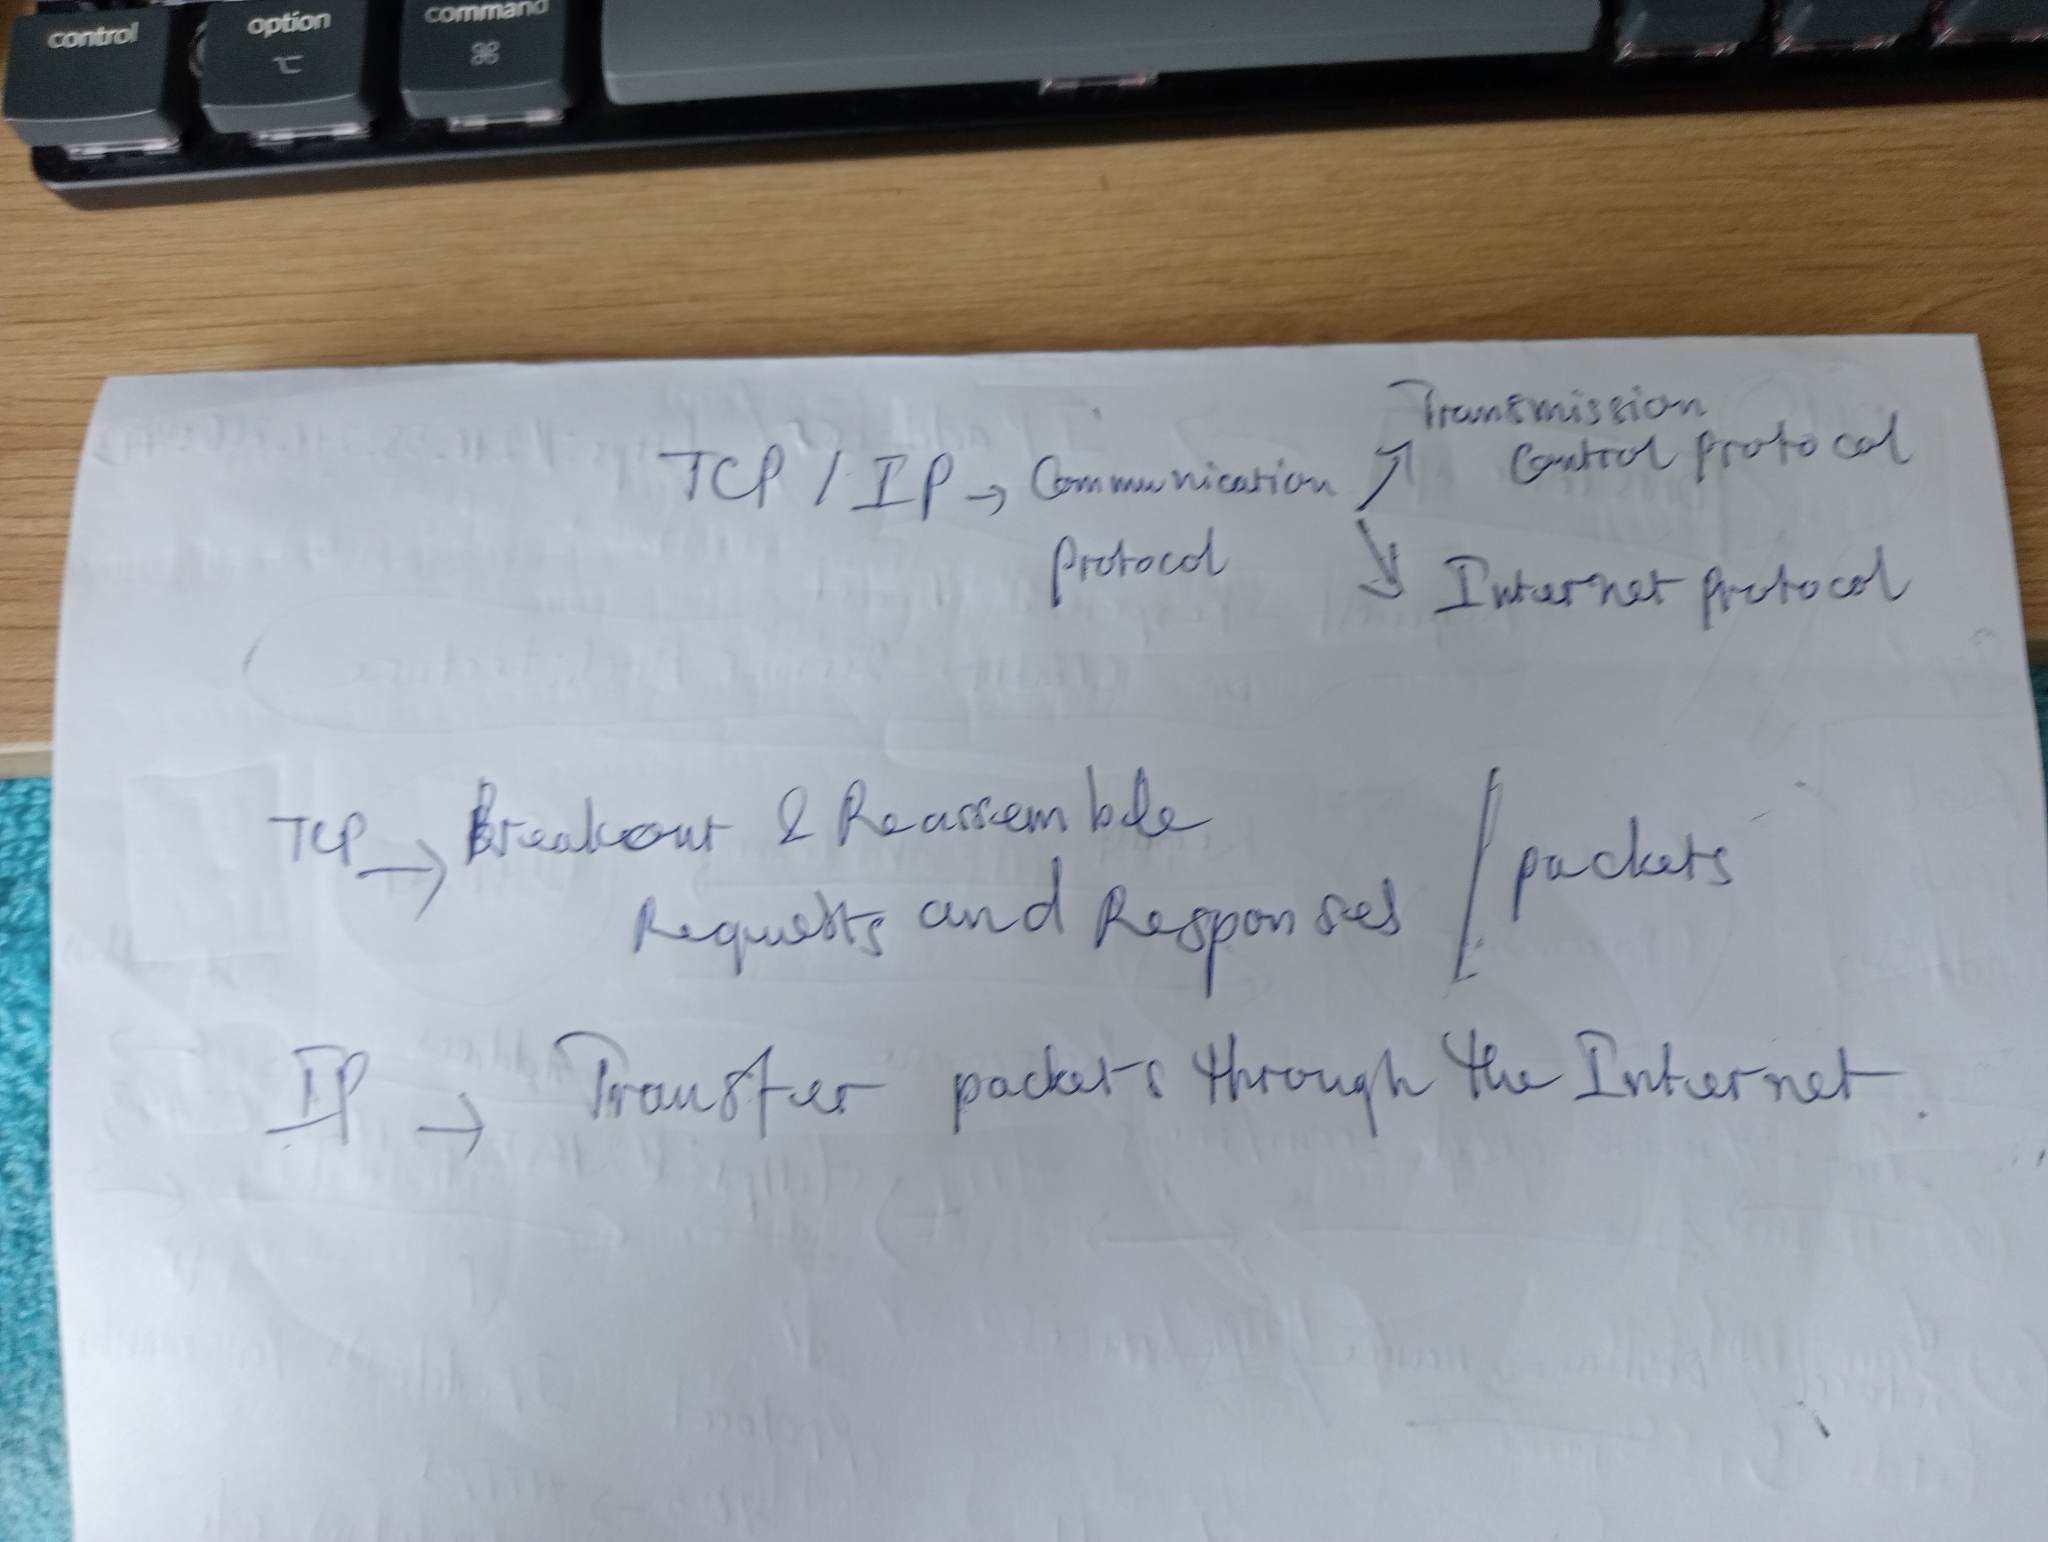 control
option
⌥
command
⌘
TCP / IP → Communication protocol
↗ Transmission control protocol
↘ Internet protocol
TCP → Breakout & Reassemble
Requests and Responses / packets
IP → Transfer packets through the Internet.